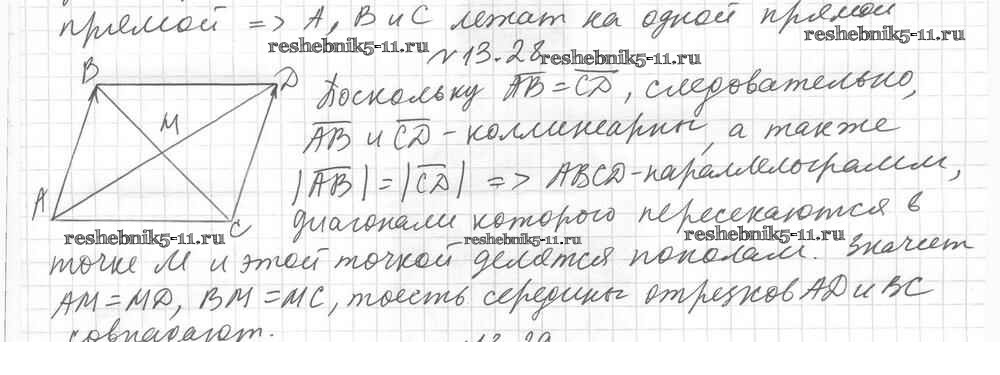 прямой => A, B и C лежат на одной прямой
reshebnik5-11.ru reshebnik5-11.ru
N 13.28 reshebnik5-11.ru
B D Поскольку AB = CD, следовательно,
M AB и CD - коллинеарны, а также
|AB| = |CD| => ABCD - параллелограмм,
A C диагонали которого пересекаются в
reshebnik5-11.ru reshebnik5-11.ru reshebnik5-11.ru
точке M и этой точкой делятся пополам. Значит
AM = MD, BM = MC, тоесть середины отрезков AD и BC
совпадают.